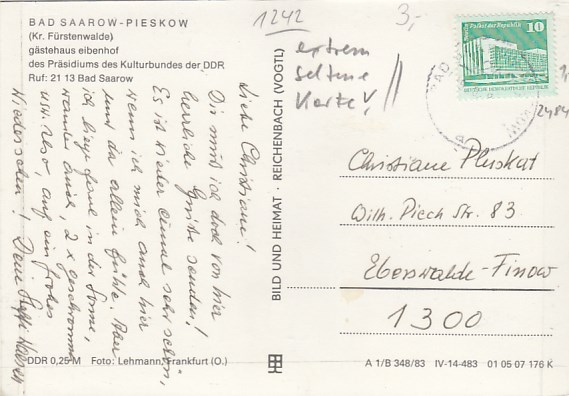 BAD SAAROW-PIESKOW
(Kr. Fürstenwalde)
gästehaus eibenhof
des Präsidiums des Kulturbundes der DDR
Ruf: 21 13 Bad Saarow
1242
3,-
extrem
seltene
Karte!
Palast der Republik
10
DEUTSCHE DEMOKRATISCHE REPUBLIK
2484
Liebe Christiane!
Dir muß ich doch von hier
herrliche Grüße senden!
Es ist wieder einmal sehr schön,
wenn ich mich auch hier
und da allein fühle. Aber
ich liege faul in der Sonne,
wandre auch, 2 x geschwommen
usw. Also, auf ein frohes
Wiedersehen! Deine Steffi
BILD UND HEIMAT · REICHENBACH (VOGTL)
Christiane Pluskat
Wilh. Pieck Str. 83
Eberswalde-Finow
1300
DDR 0,25 M Foto: Lehmann, Frankfurt (O.)
A 1/B 348/83 IV-14-483 01 05 07 176 K